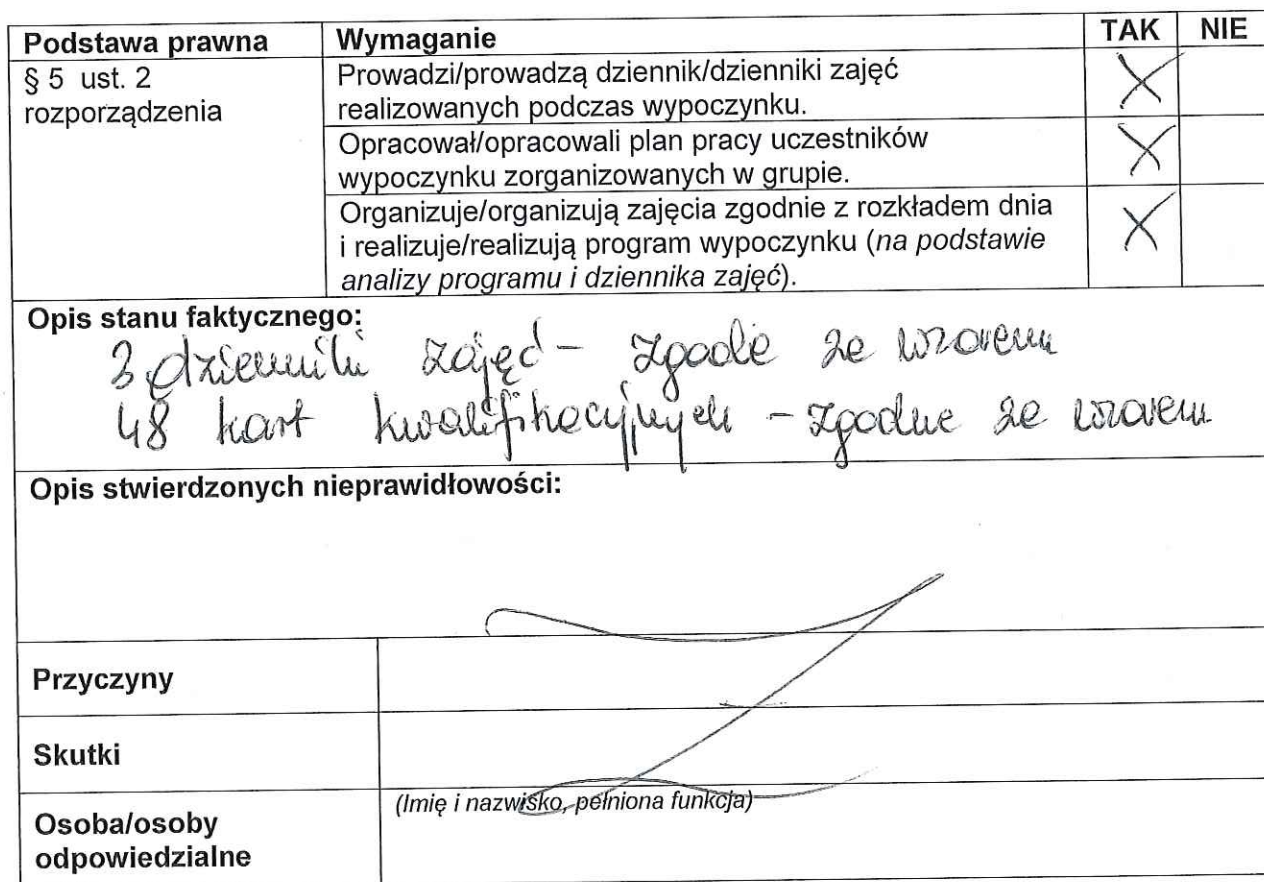 Podstawa prawna Wymaganie TAK NIE
§ 5 ust. 2 rozporządzenia
Prowadzi/prowadzą dziennik/dzienniki zajęć
realizowanych podczas wypoczynku. X
Opracował/opracowali plan pracy uczestników
wypoczynku zorganizowanych w grupie. X
Organizuje/organizują zajęcia zgodnie z rozkładem dnia
i realizuje/realizują program wypoczynku (na podstawie
analizy programu i dziennika zajęć). X
Opis stanu faktycznego:
3 dzienniki zajęć - zgodne ze wzorem
48 kart kwalifikacyjnych - zgodne ze wzorem
Opis stwierdzonych nieprawidłowości:
Przyczyny
Skutki
Osoba/osoby
odpowiedzialne
(Imię i nazwisko, pełniona funkcja)